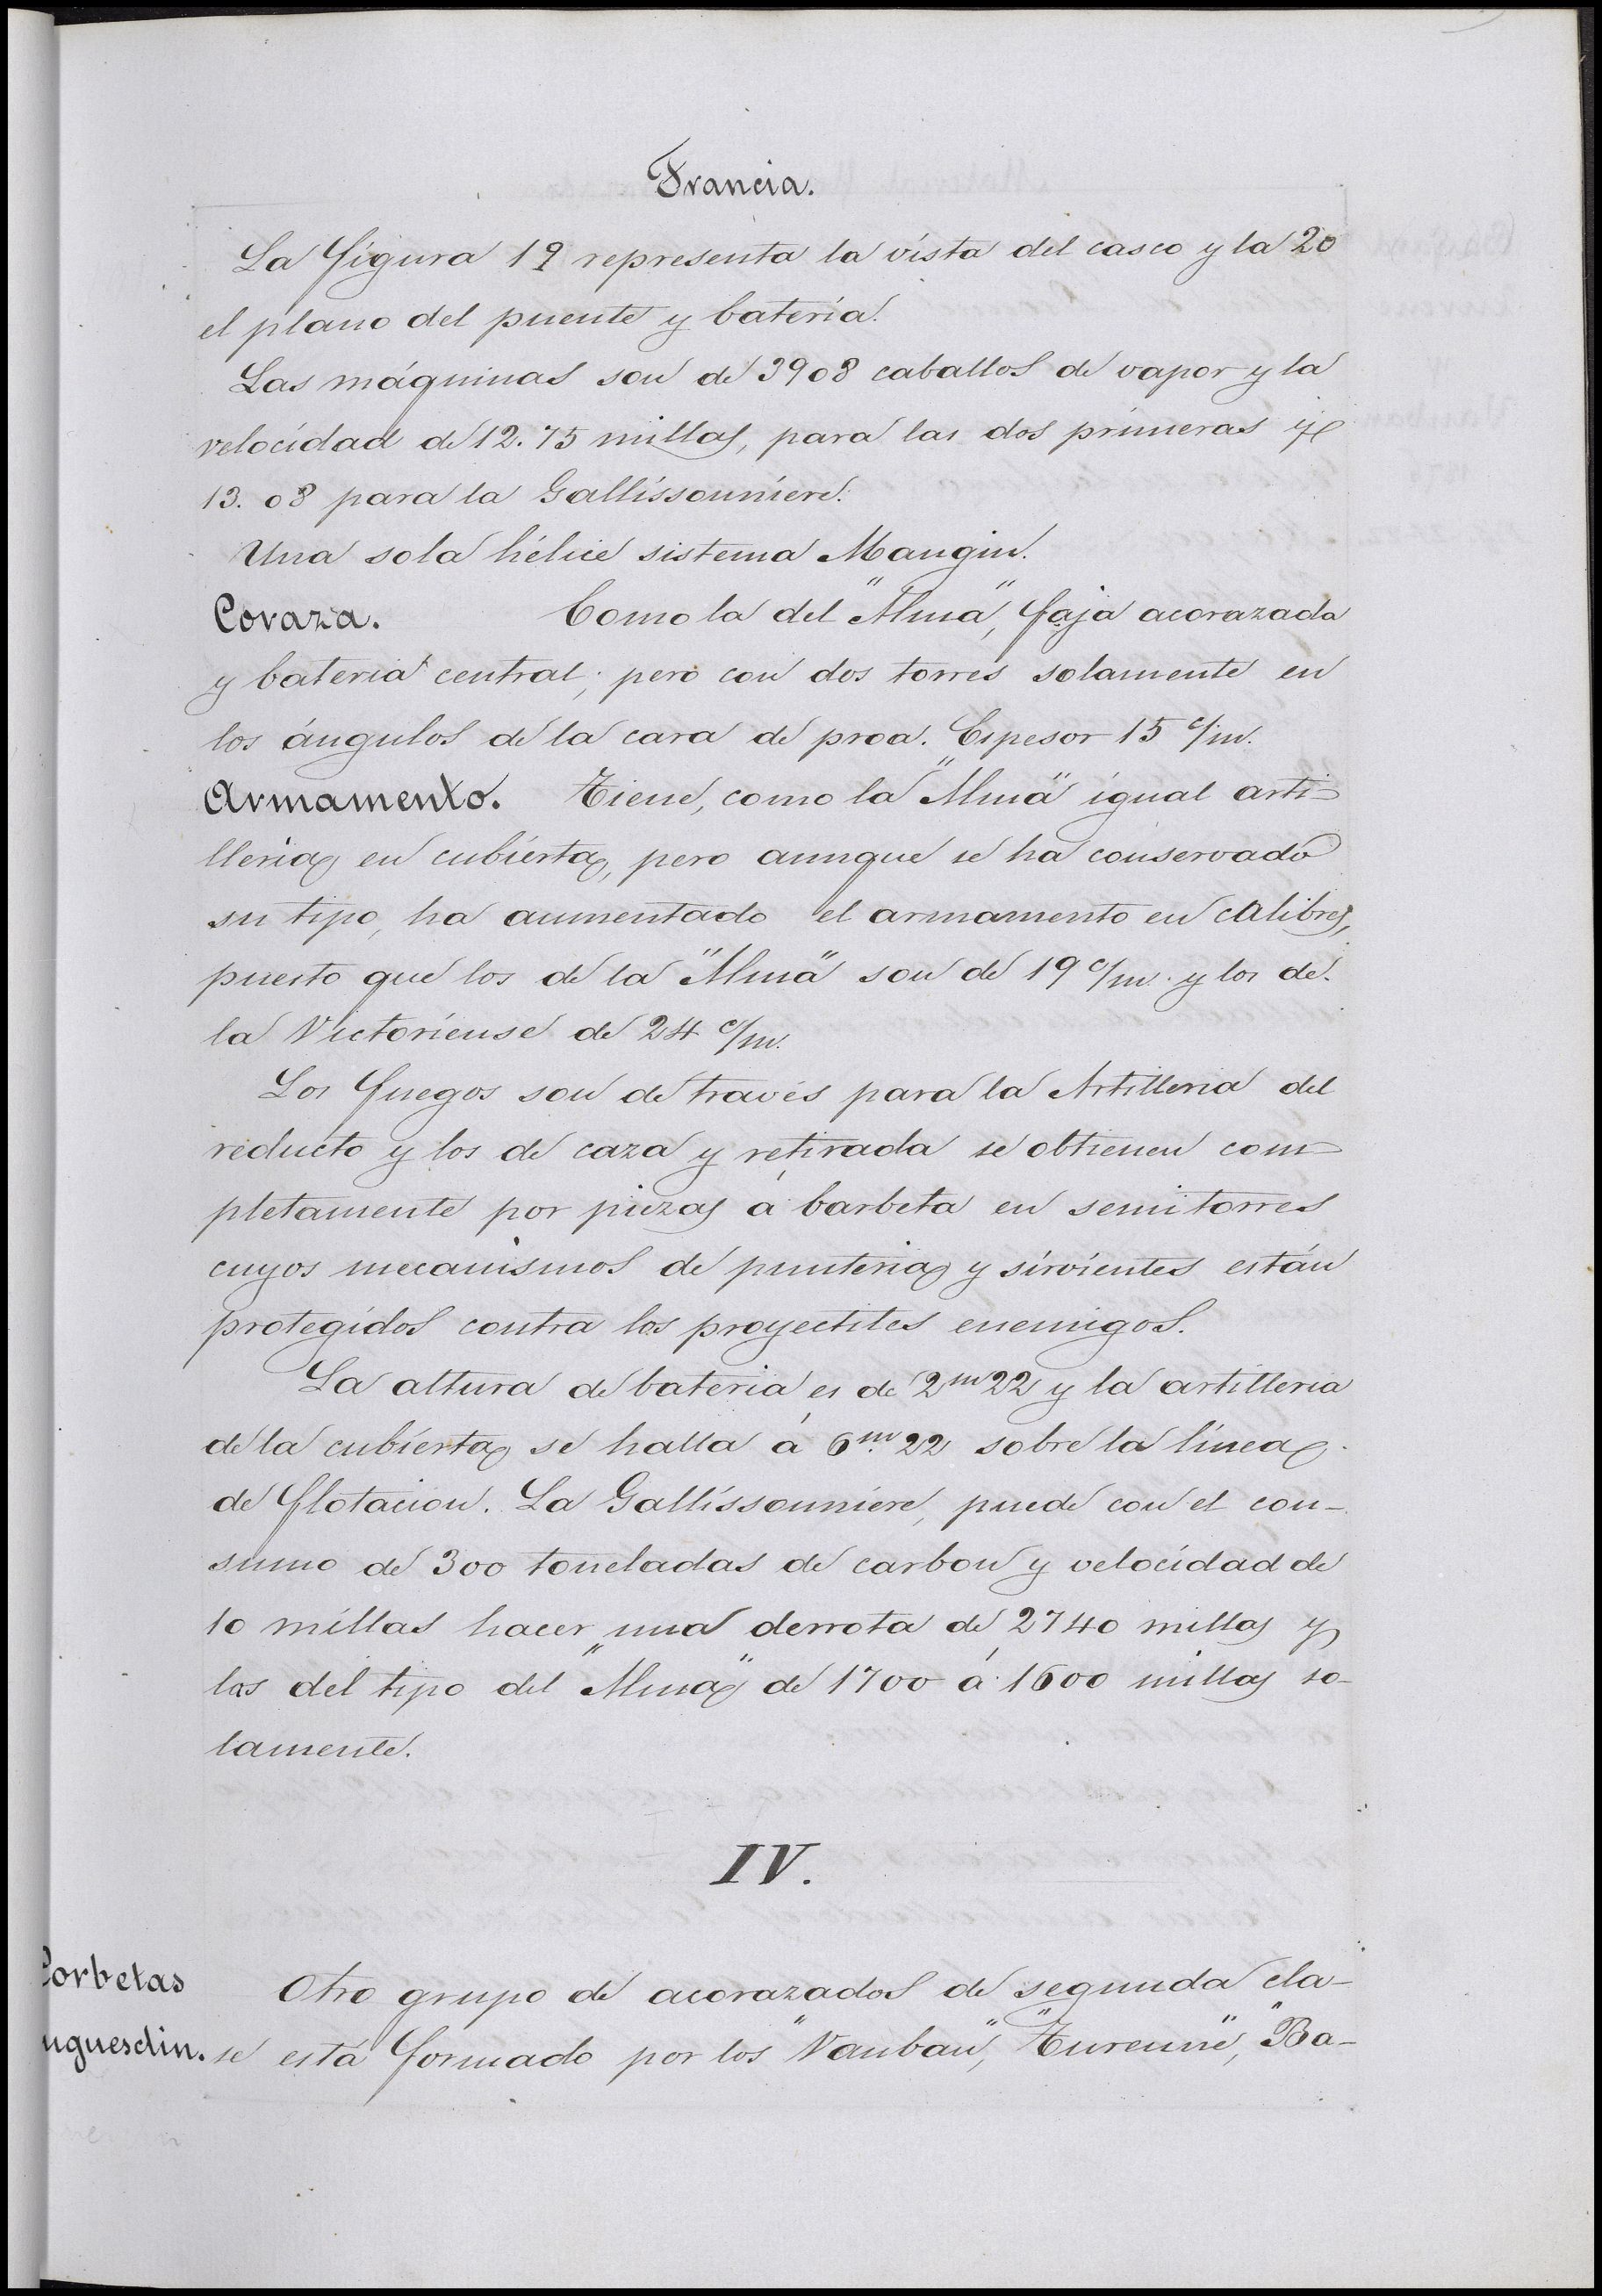 Francia.
La figura 19 representa la vista del casco y la 20
el plano del puente y bateria.
Las máquinas son de 3908 caballos de vapor y la
velocidad de 12.75 millas, para las dos primeras y
13.08 para la Gallissounniere.
Una sola hélice sistema Mangin.
Coraza. Como la del "Alma", faja acorazada
y bateria central; pero con dos torres solamente en
los ángulos de la cara de proa. Espesor 15 c/m.
Armamento. Tiene, como la "Alma" igual arti-
lleria en cubierta, pero aunque se ha conservado
su tipo, ha aumentado el armamento en calibres,
puesto que los de la "Alma" son de 19 c/m. y los de
la Victorieuse de 24 c/m.
Los fuegos son de través para la Artilleria del
reducto y los de caza y retirada se obtienen com-
pletamente por piezas á barbeta en semitorres
cuyos mecanismos de punteria y sirvientes están
protegidos contra los proyectiles enemigos.
La altura de bateria es de 2m22 y la artilleria
de la cubierta se halla á 6m.22 sobre la línea
de flotacion. La Gallissounniere, puede con el con-
sumo de 300 toneladas de carbon y velocidad de
10 millas hacer una derrota de 2740 millas y
las del tipo del "Alma" de 1700 á 1600 millas so-
lamente.
IV.
Corbetas
uguesclin.
Otro grupo de acorazados de segunda cla-
se está formado por los "Vauban", "Turenne", "Ba-